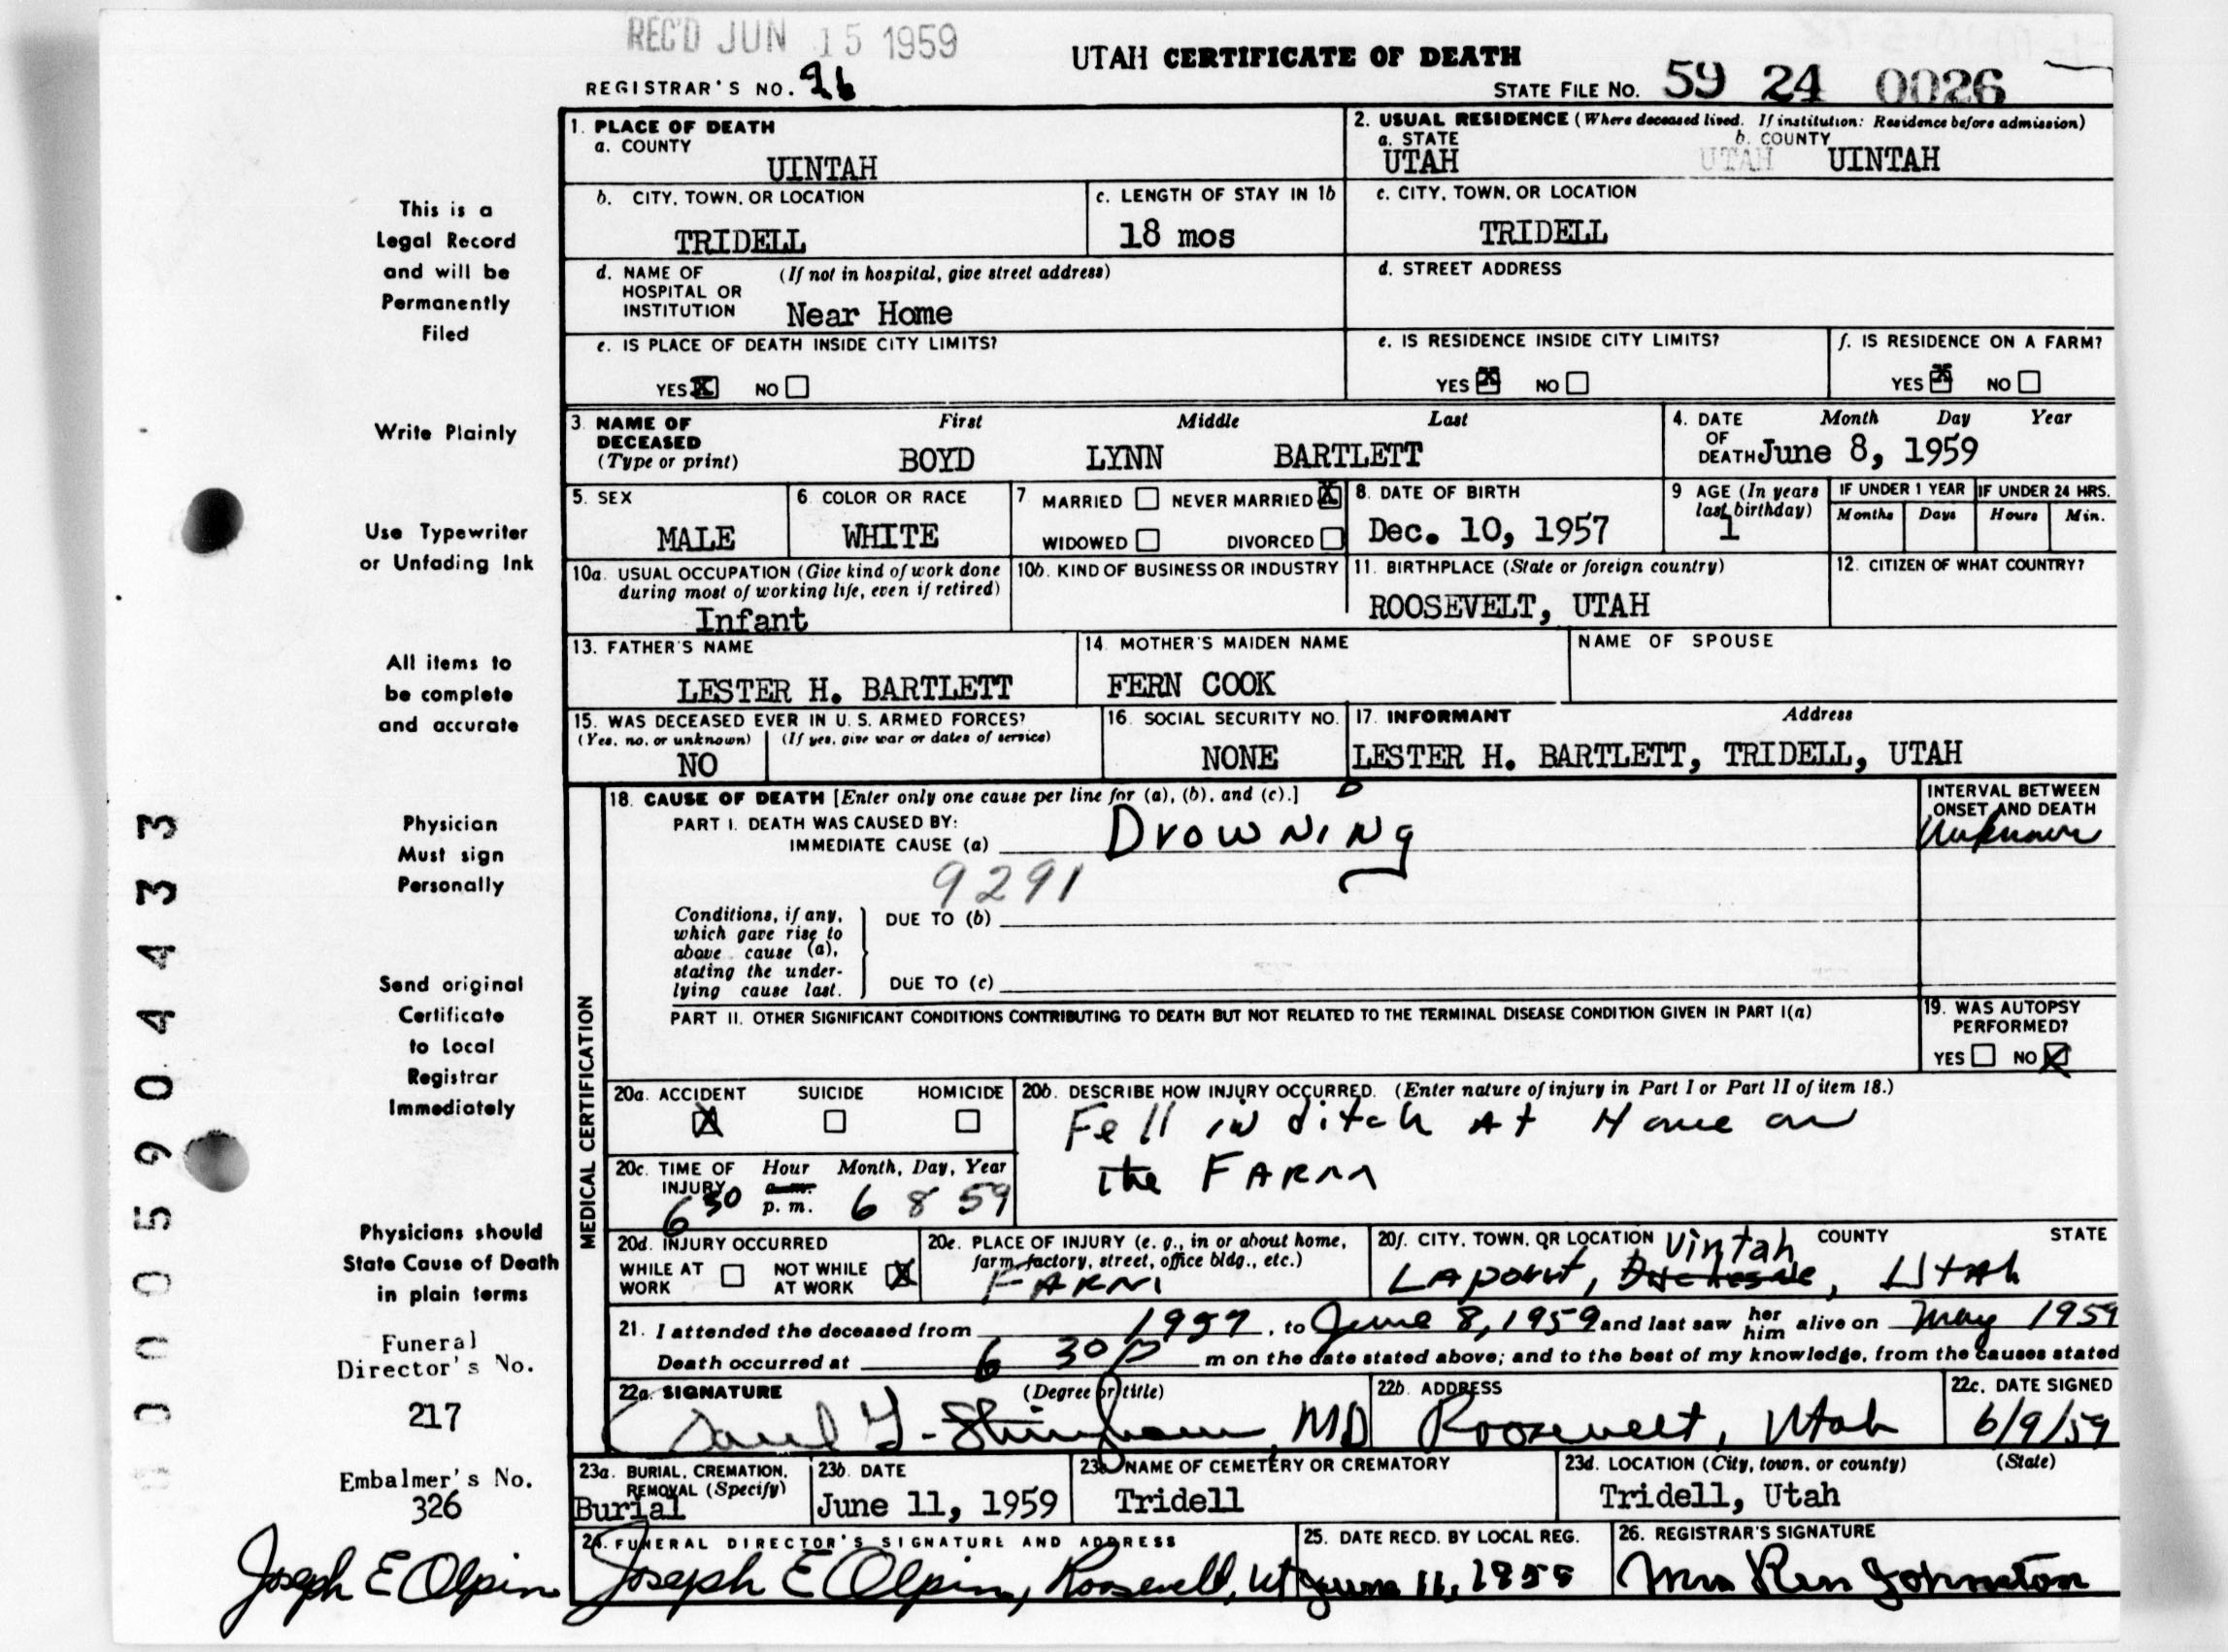 REC'D JUN 15 1959
UTAH CERTIFICATE OF DEATH
REGISTRAR'S NO. 26
STATE FILE NO. 59 24 0026
1. PLACE OF DEATH
a. COUNTY
UINTAH
2. USUAL RESIDENCE (Where deceased lived. If institution: Residence before admission)
a. STATE
UTAH
b. COUNTY
UTAH UINTAH
b. CITY, TOWN, OR LOCATION
TRIDELL
c. LENGTH OF STAY IN 1b
18 mos
c. CITY, TOWN, OR LOCATION
TRIDELL
d. NAME OF HOSPITAL OR INSTITUTION (If not in hospital, give street address)
Near Home
d. STREET ADDRESS
e. IS PLACE OF DEATH INSIDE CITY LIMITS?
YES X NO
e. IS RESIDENCE INSIDE CITY LIMITS?
YES X NO
f. IS RESIDENCE ON A FARM?
YES X NO
3. NAME OF DECEASED (Type or print)
First Middle Last
BOYD LYNN BARTLETT
4. DATE OF DEATH Month Day Year
June 8, 1959
5. SEX
MALE
6. COLOR OR RACE
WHITE
7. MARRIED NEVER MARRIED X
WIDOWED DIVORCED
8. DATE OF BIRTH
Dec. 10, 1957
9 AGE (In years last birthday)
1
IF UNDER 1 YEAR
Months Days
IF UNDER 24 HRS.
Hours Min.
10a. USUAL OCCUPATION (Give kind of work done during most of working life, even if retired)
Infant
10b. KIND OF BUSINESS OR INDUSTRY
11. BIRTHPLACE (State or foreign country)
ROOSEVELT, UTAH
12. CITIZEN OF WHAT COUNTRY?
13. FATHER'S NAME
LESTER H. BARTLETT
14. MOTHER'S MAIDEN NAME
FERN COOK
NAME OF SPOUSE
15. WAS DECEASED EVER IN U. S. ARMED FORCES?
(Yes, no, or unknown) (If yes, give war or dates of service)
NO
16. SOCIAL SECURITY NO.
NONE
17. INFORMANT Address
LESTER H. BARTLETT, TRIDELL, UTAH
MEDICAL CERTIFICATION
18. CAUSE OF DEATH [Enter only one cause per line for (a), (b), and (c).]
PART I. DEATH WAS CAUSED BY:
IMMEDIATE CAUSE (a) Drowning
INTERVAL BETWEEN ONSET AND DEATH
Unknown
9291
Conditions, if any, which gave rise to above cause (a), stating the underlying cause last.
DUE TO (b)
DUE TO (c)
PART II. OTHER SIGNIFICANT CONDITIONS CONTRIBUTING TO DEATH BUT NOT RELATED TO THE TERMINAL DISEASE CONDITION GIVEN IN PART I(a)
19. WAS AUTOPSY PERFORMED?
YES NO X
20a. ACCIDENT SUICIDE HOMICIDE
X
20b. DESCRIBE HOW INJURY OCCURRED. (Enter nature of injury in Part I or Part II of item 18.)
Fell in ditch At Home on
the FARM
20c. TIME OF INJURY Hour Month, Day, Year
6 30 a.m. p. m. 6 8 59
20d. INJURY OCCURRED
WHILE AT WORK NOT WHILE AT WORK X
20e. PLACE OF INJURY (e. g., in or about home, farm, factory, street, office bldg., etc.)
FARM
20f. CITY, TOWN, OR LOCATION COUNTY STATE
Uintah
Lapoint, Duchesne, Utah
21. I attended the deceased from 1957, to June 8, 1959 and last saw her him alive on May 1959
Death occurred at 6 30 P m on the date stated above; and to the best of my knowledge, from the causes stated
22a. SIGNATURE (Degree or title)
MD
22b. ADDRESS
Roosevelt, Utah
22c. DATE SIGNED
6/9/59
23a. BURIAL, CREMATION, REMOVAL (Specify)
Burial
23b. DATE
June 11, 1959
23c. NAME OF CEMETERY OR CREMATORY
Tridell
23d. LOCATION (City, town, or county) (State)
Tridell, Utah
24. FUNERAL DIRECTOR'S SIGNATURE AND ADDRESS
Joseph E Olpin, Roosevelt, Ut
25. DATE RECD. BY LOCAL REG.
June 11, 1959
26. REGISTRAR'S SIGNATURE
Mrs Johnston
This is a
Legal Record
and will be
Permanently
Filed
Write Plainly
Use Typewriter
or Unfading Ink
All items to
be complete
and accurate
Physician
Must sign
Personally
Send original
Certificate
to Local
Registrar
Immediately
Physicians should
State Cause of Death
in plain terms
Funeral
Director's No.
217
Embalmer's No.
326
Joseph E Olpin
0005904433